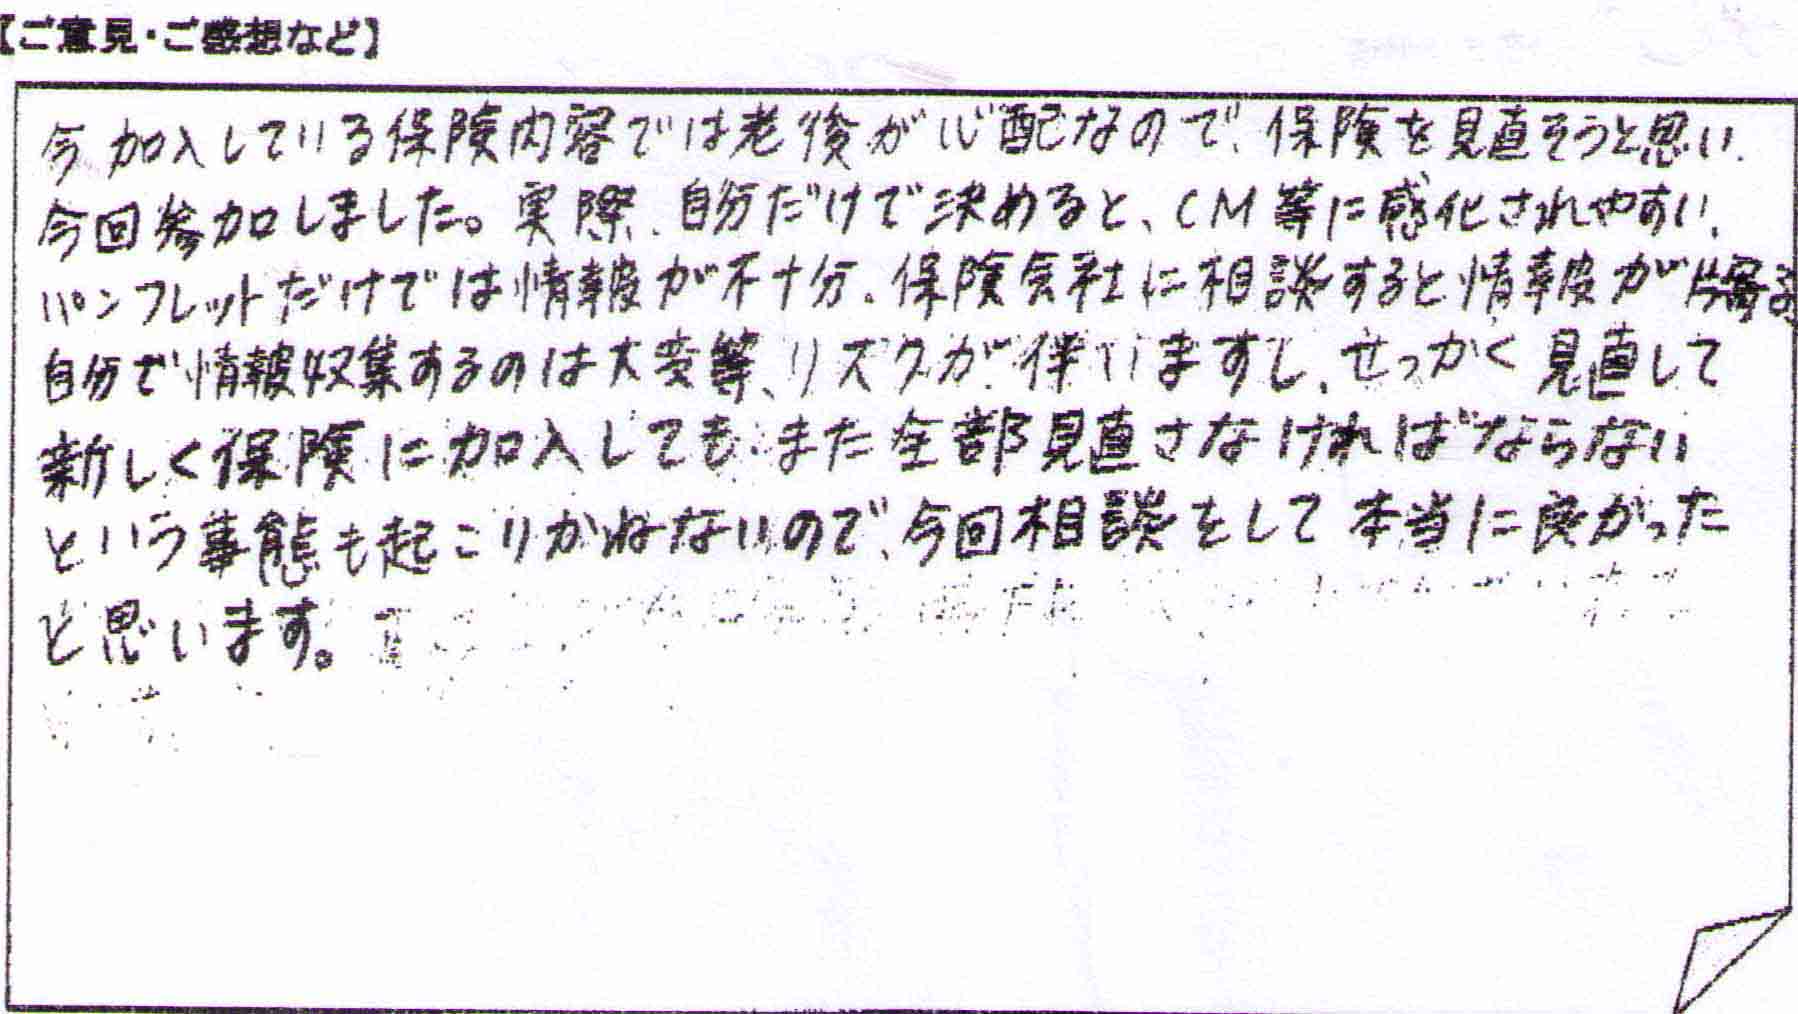 【ご意見・ご感想など】
今加入している保険内容では老後が心配なので、保険を見直そうと思い、
今回参加しました。実際、自分だけで決めると、CM等に感化されやすい、
パンフレットだけでは情報が不十分、保険会社に相談すると情報が片寄る、
自分で情報収集するのは大変等、リスクが伴いますし、せっかく見直して
新しく保険に加入しても、また全部見直さなければならない
という事態も起こりかねないので、今回相談をして本当に良かった
と思います。